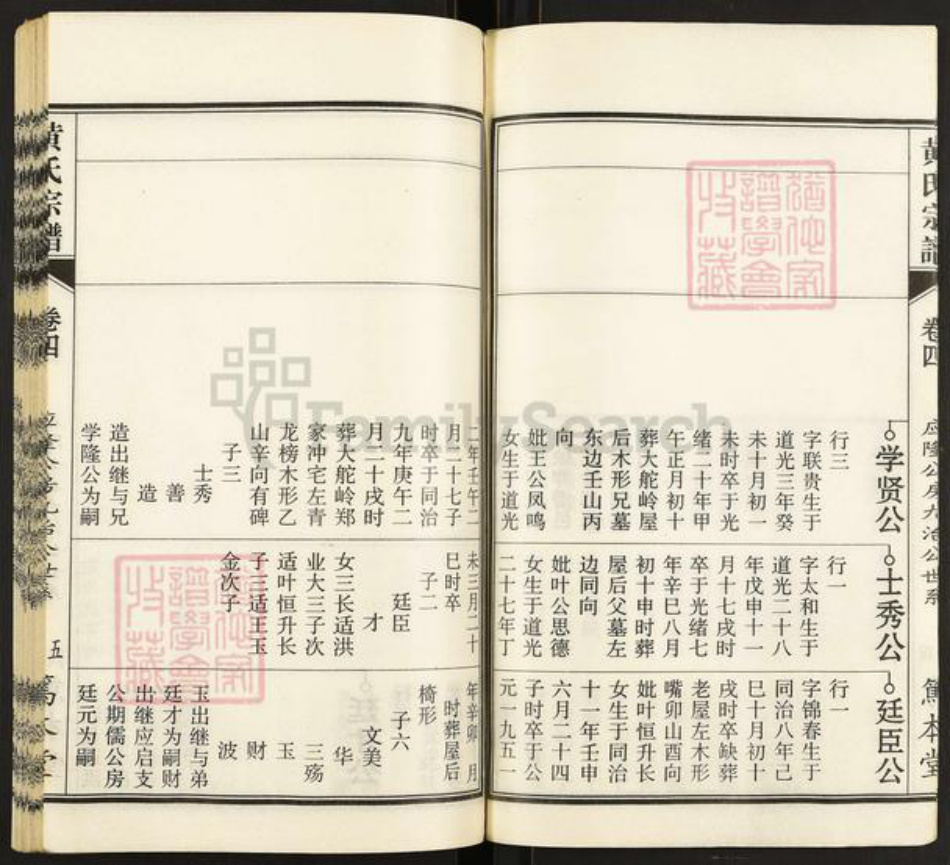 黄氏宗谱
卷四
应隆公房九治公世系
笃本堂
学贤公
行三
字联贵生于
道光三年癸
未十月初一
未时卒于光
绪二十年甲
午正月初十
葬大舵岭屋
后木形兄墓
东边壬山丙
向
妣王公凤鸣
女生于道光
二年壬午二
月二十七子
时卒于同治
九年庚午二
月二十戌时
葬大舵岭郑
家冲宅左青
龙榜木形乙
山辛向有碑
子三
士秀
善
造
造出继与兄
学隆公为嗣
士秀公
行一
字太和生于
道光二十八
年戊申十一
月十七戌时
卒于光绪七
年辛巳八月
初十申时葬
屋后父墓左
边同向
妣叶公思德
女生于道光
二十七年丁
未三月二十
巳时卒
子二
廷臣
才
女三长适洪
业大三子次
适叶恒升长
子三适王玉
金次子
廷臣公
行一
字锦春生于
同治八年己
巳十月初十
戌时卒缺葬
老屋左木形
嘴卯山酉向
妣叶恒升长
女生于同治
十一年壬申
六月二十四
子时卒于公
元一九五一
年辛卯 月
时葬屋后
椅形
子六
文美
华
三殇
玉
财
波
玉出继与弟
廷才为嗣财
出继应启支
公期儒公房
廷元为嗣
黄氏宗谱
卷四
五
笃本堂
FamilySearch